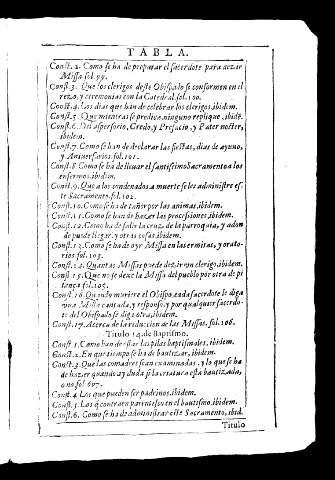 TABLA.
Const. 2. Como se ha de preparar el sacerdote para dezir
Missa fol. 99.
Const. 3. Que los clerigos deste Obispado se conformen en el
rezo, y ceremonias con la Catedral. fol. 100.
Const. 4. Los dias que han de celebrar los clerigos, ibidem.
Const. 5. Que mientras se predica, ninguno replique, ibidẽ.
Const. 6. Del aspersorio, Credo, y Prefacio, y Pater noster,
ibidem.
Const. 7. Como se han de declarar las fiestas, dias de ayuno,
y Aniversarios. fol. 101.
Const. 8. Como se ha de llevar el santissimo Sacramento a los
enfermos. ibidem.
Const. 9. Que a los condenados a muerte se les administre es
te Sacramento. fol. 102.
Const. 10. Como se ha de tañer por las animas, ibidem.
Const. 11. Como se han de hazer las processiones, ibidem.
Const. 12. Como ha de salir la cruz de la parroquia, y adon
de puede llegar, y otras cosas ibidem.
Const. 13. Como se ha de oyr Missa en las ermitas, y orato-
rios. fol. 103.
Const. 14. Quantas Missas puede dezir vn clerigo, ibidem.
Const. 15. Que no se dexe la Missa del pueblo por otra de pi
tança fol. 105.
Const. 16. Quando muriere el Obispo, cada sacerdote le diga
vna Missa cantada, y responso, y por qualquier sacerdo-
te del Obispado se diga otra, ibidem.
Const. 17. Acerca de la reducion de las Missas. fol. 106.
Titulo 14. de Baptismo.
Const. 1. Como han de estar las pilas baptismales, ibidem.
Const. 2. En que tiempo se ha de bautizar, ibidem.
Const. 3. Que las comadres sean examinadas, y lo que se ha
de hazer quando ay duda si la criatura esta bautizada,
o no fol. 107.
Const. 4. Los que pueden ser padrinos, ibidem.
Const. 5. Los q̃ contraen parentesco en el bautismo, ibidem.
Const. 6. Como se ha de administrar este Sacramento, ibid.
Titulo